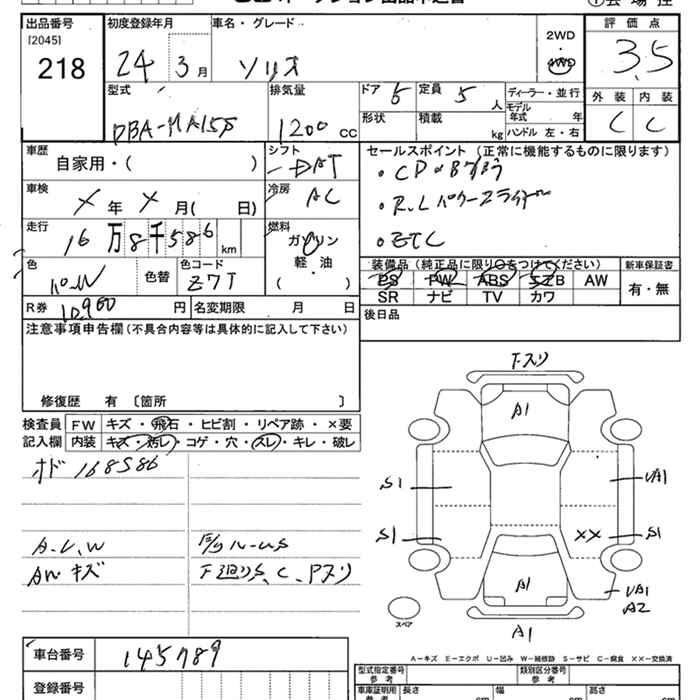 出品番号
[2045]
218
初度登録年月
24 3月
車名・グレード
ソリオ
2WD
・
4WD
評価点
3.5
外装 内装
C C
型式
DBA-MA15S
排気量
1200 CC
ドア 5
定員 5 人
形状
積載 kg
ディーラー・並行
モデル年式 年
ハンドル 左・右
車歴
自家用・( )
シフト
DAT
冷房
AC
車検
メ年 メ月( 日)
走行
16万8千586km
燃料
ガソリン
軽・油
( )
色
パール
色替
色コード
Z7T
R券
10,960円
名変期限 月 日
セールスポイント (正常に機能するものに限ります)
・R,Lパワースライドドア
・ETC
装備品 (純正品に限り○をつけてください)
PS PW ABS エアB AW
SR ナビ TV カワ
新車保証書
有・無
後日品
注意事項申告欄(不具合内容等は具体的に記入して下さい)
修復歴 有 〔箇所 〕
検査員記入欄
FW キズ・飛石・ヒビ割・リペア跡・×要
内装 キズ・汚レ・コゲ・穴・スレ・キレ・破レ
オド 168586
A.U.W
AWキズ
F廻りS、C、Pスリ
Fスリ
A1
S1
UA1
S1
XX
S1
A1
UA1
A2
A1
スペア
A-キズ E-エクボ U-凹み W-補修跡 S-サビ C-腐食 XX-交換済
車台番号
145789
登録番号
型式指定番号
参考
類別区分番号
参考
車庫証明用
参考
長さ cm
幅 cm
高さ cm